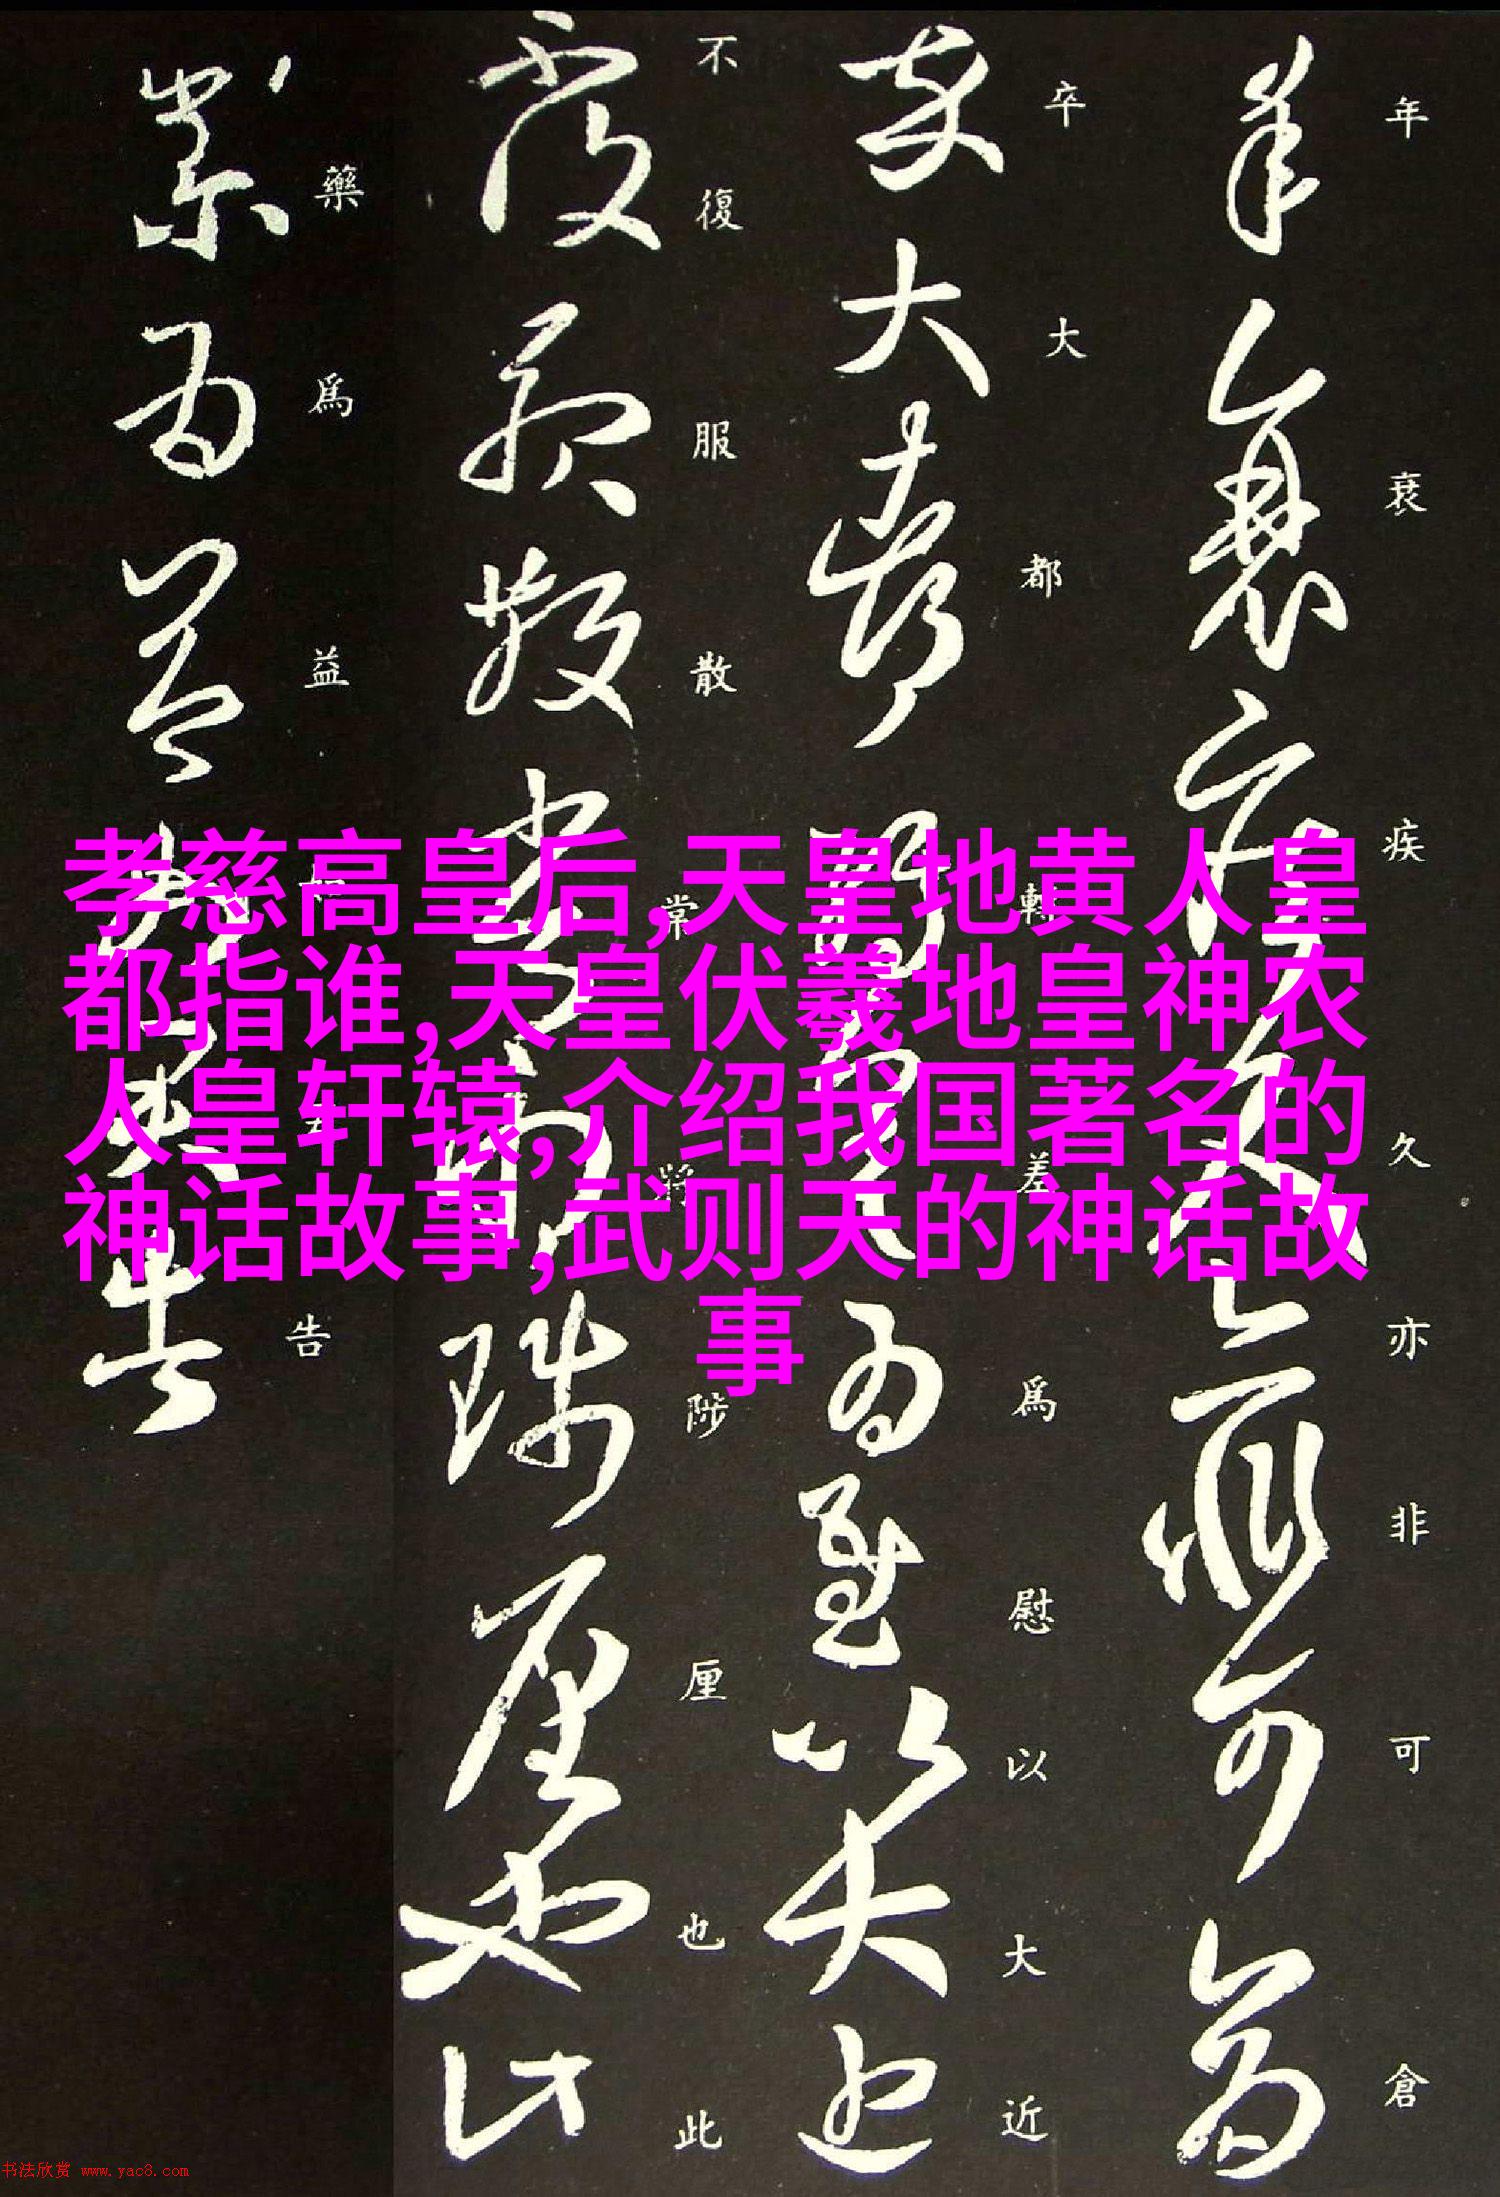 孝慈高皇后,天皇地黄人皇
都指谁,天皇伏羲地皇神农
人皇轩辕,介绍我国著名的
神话故事,武则天的神话故
事
年衰疾久亦非可倉
卒大都轉差為慰以大近
不復服散常將陟厘也此
藥為益如告
书法欣赏 www.yac8.com